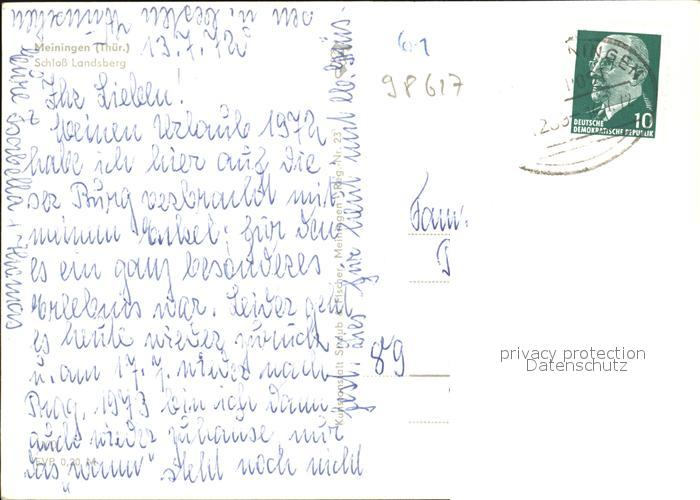 Meiningen (Thür.)
Schloß Landsberg
13.7.72
Ihr Lieben!
Meinen Urlaub 1972
habe ich hier auf die
ser Burg verbracht mit
meinem Enkel. Für den
es ein ganz besonderes
Erlebnis war. Leider geht
es heute wieder zurück
u. am 17.7. wieder nach
Prag. 1973 bin ich dann
auch wieder zuhause, nur
das "wann" steht noch nicht
fest.
für heute und
EVP 0,20 M
Kunstanstalt Straub & Fischer, Meiningen
Reg.-Nr. 23
61
98617
Fam.
89
NINGEN
10
DEUTSCHE
DEMOKRATISCHE REPUBLIK
privacy protection
Datenschutz